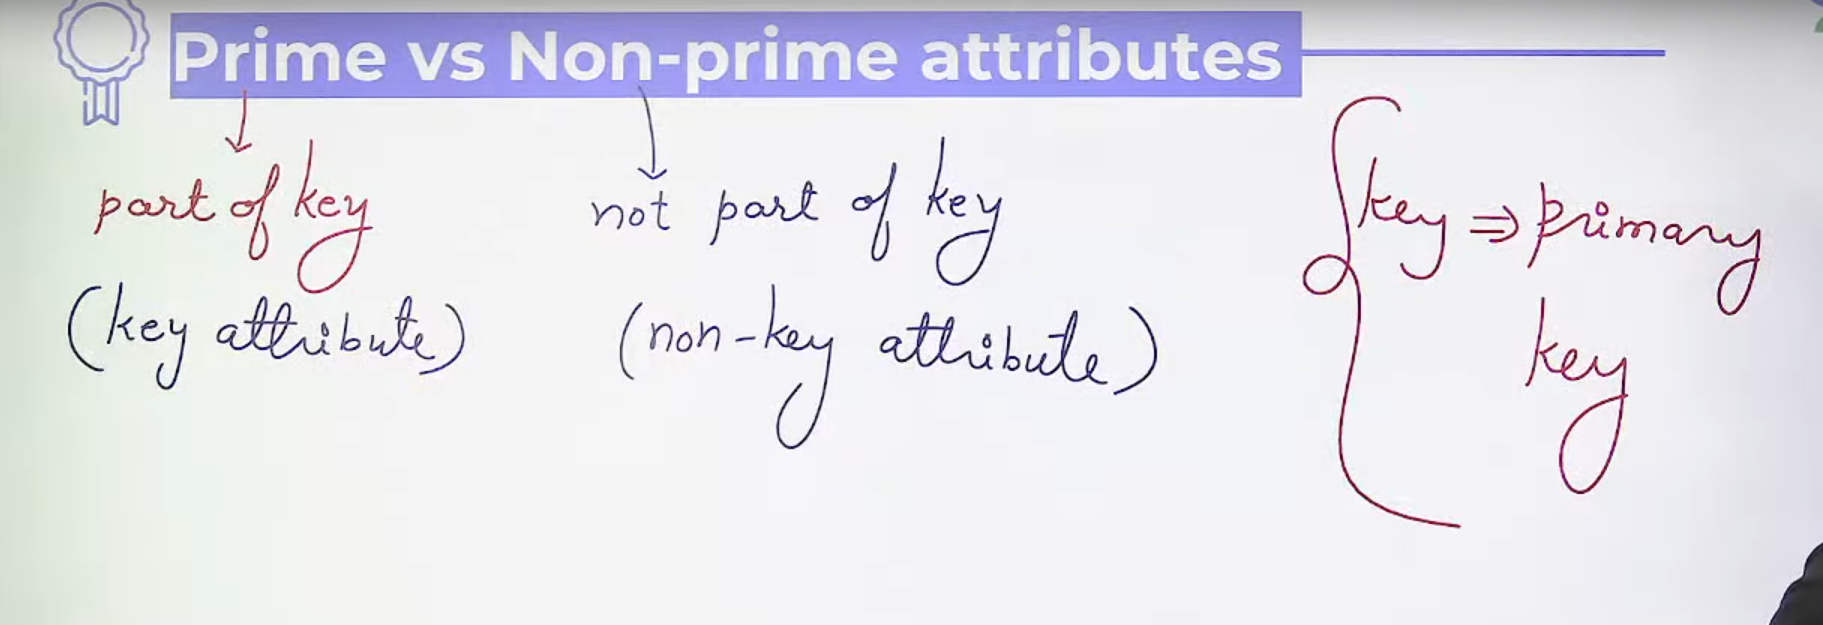 Prime vs Non-prime attributes
part of key
(key attribute)
not part of key
(non-key attribute)
key ⇒ primary
key